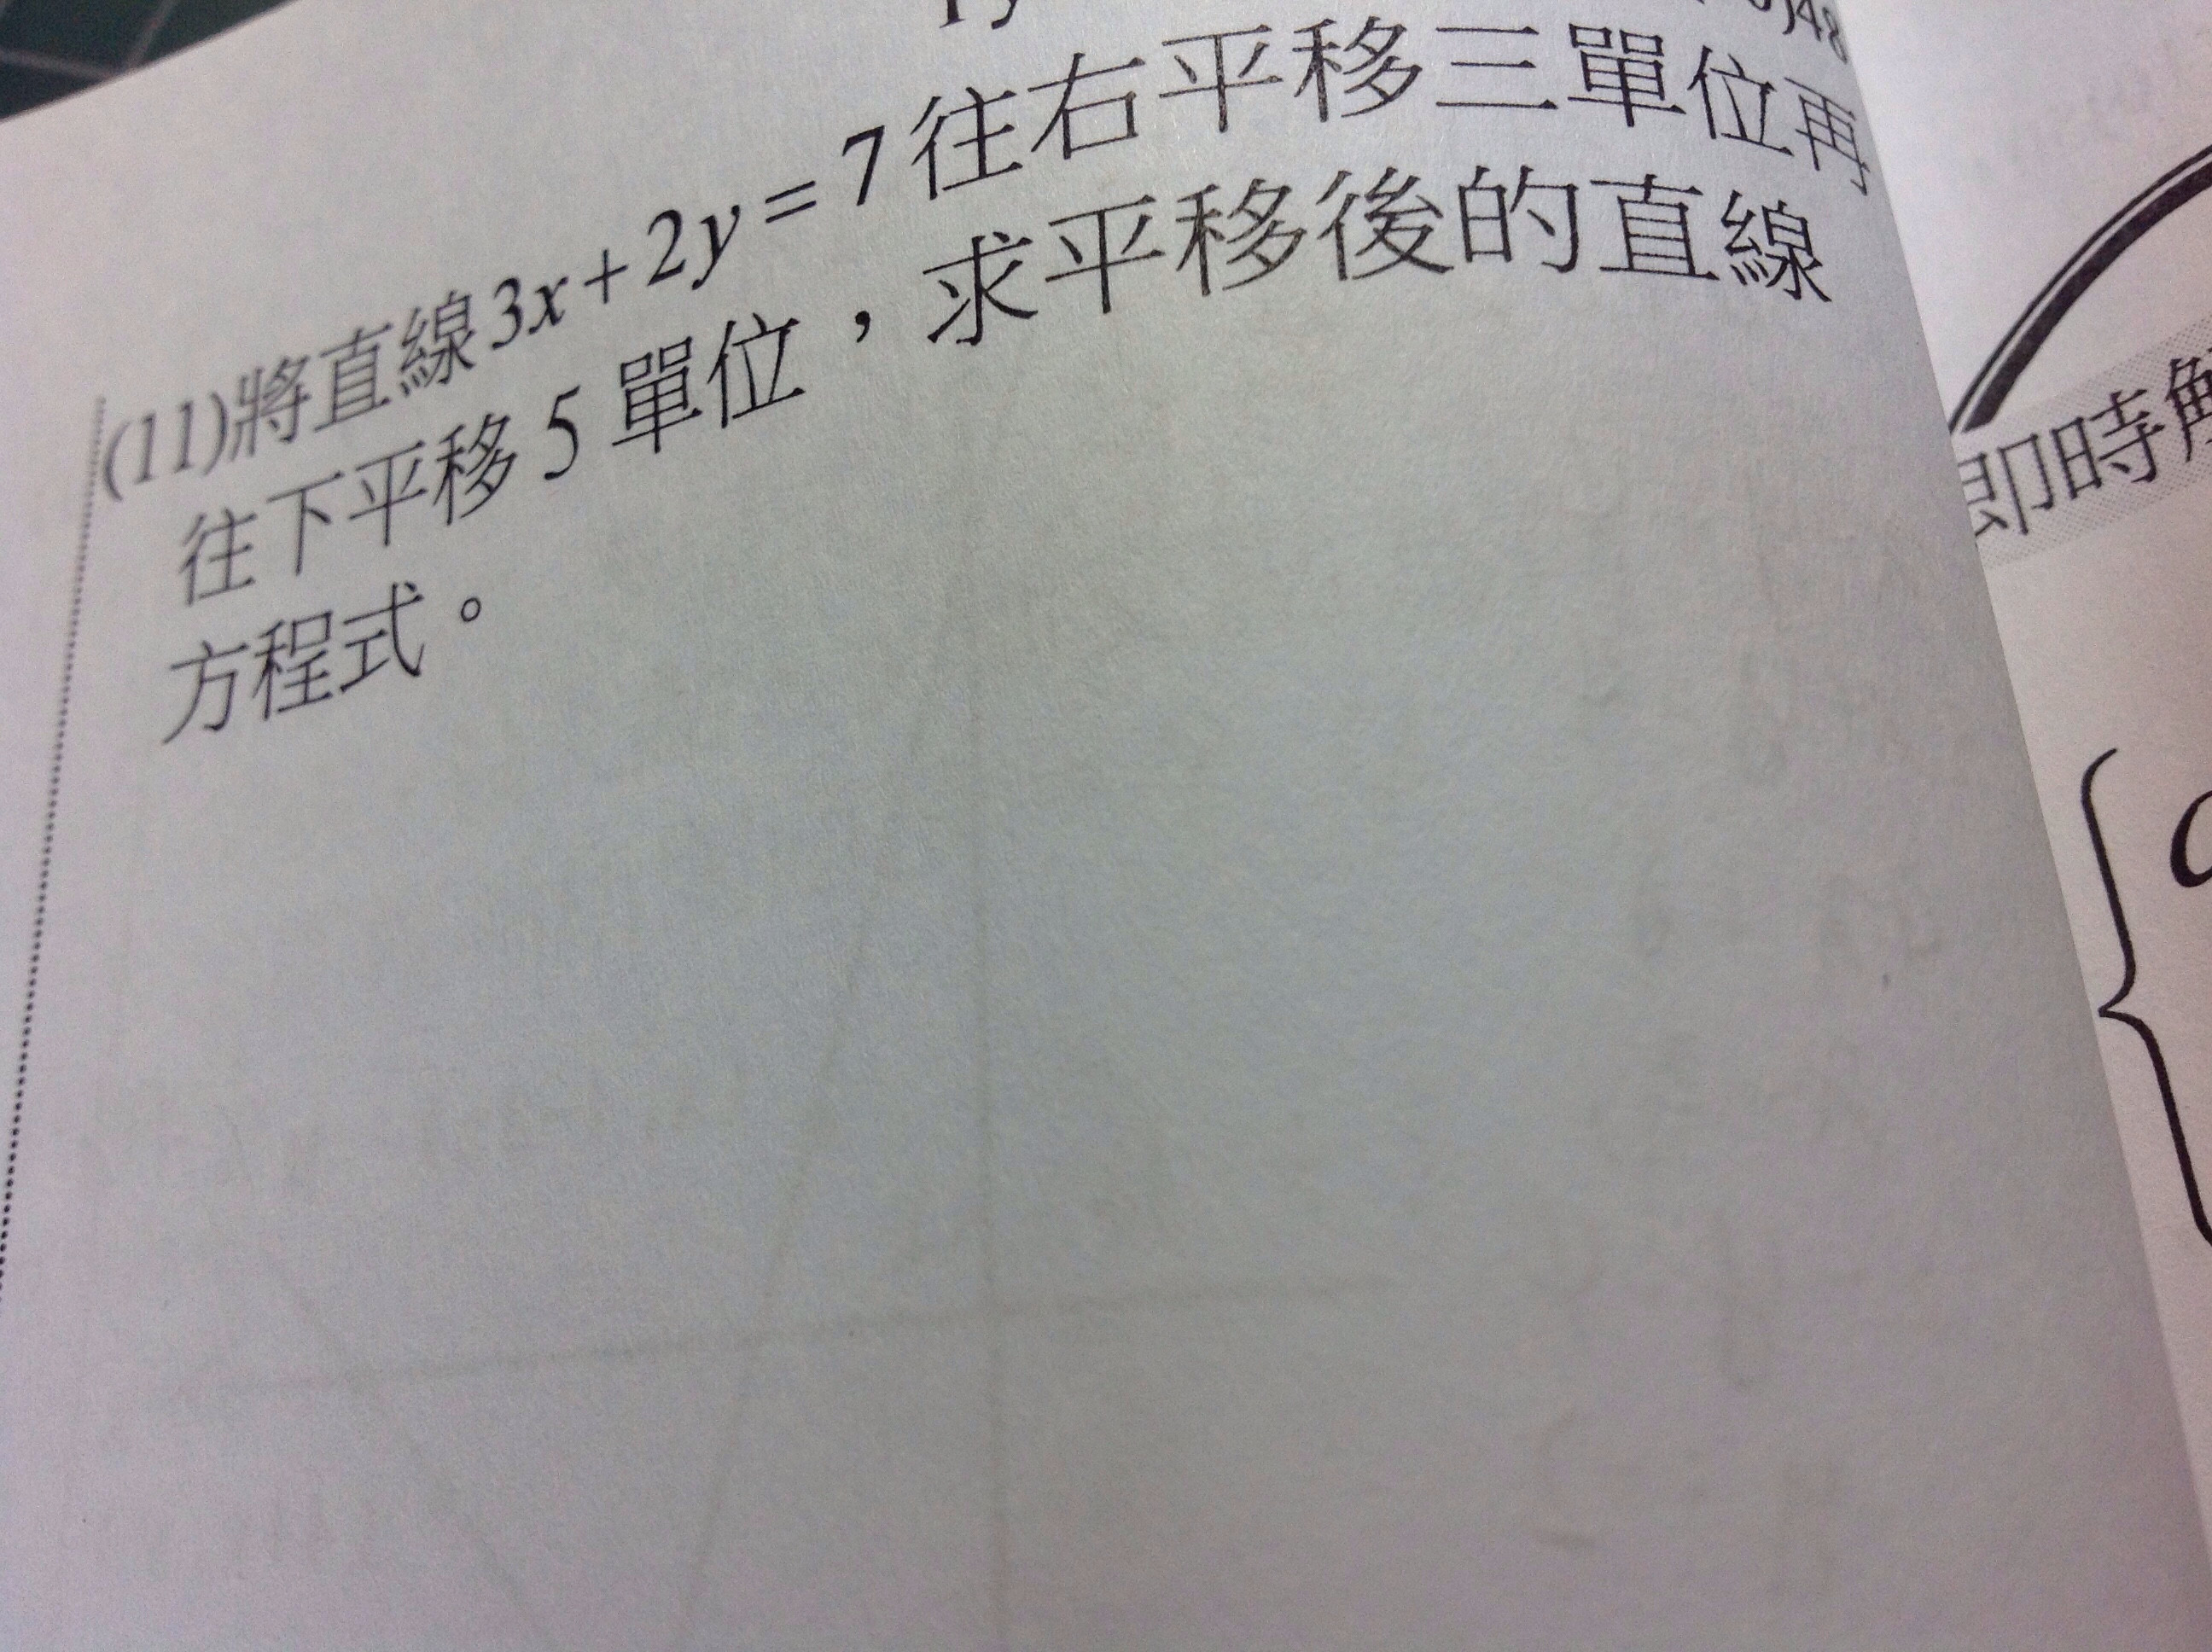 (11)將直線3x+2y=7往右平移三單位再
往下平移5單位，求平移後的直線
方程式。
即時